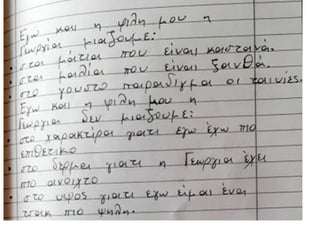 Εγω και η φιλη μου η
Γεωργία μιαζουμε:
• στα μάτια που είναι καστανά.
• στα μαλλιά που είναι ξανθά.
• στο γουστο παραδιγμα οι ταινίες.
Εγω και η φιλη μου η
Γεωργια δεν μιαζουμε:
• στο χαρακτήρα γιατι εγω έχω πιο
επιθετικο
• στο δέρμα γιατι η Γεωργια έχει
πιο ανοιχτο
• στο υψος γιατι εγω είμαι ένα
τσακ πιο ψηλη.